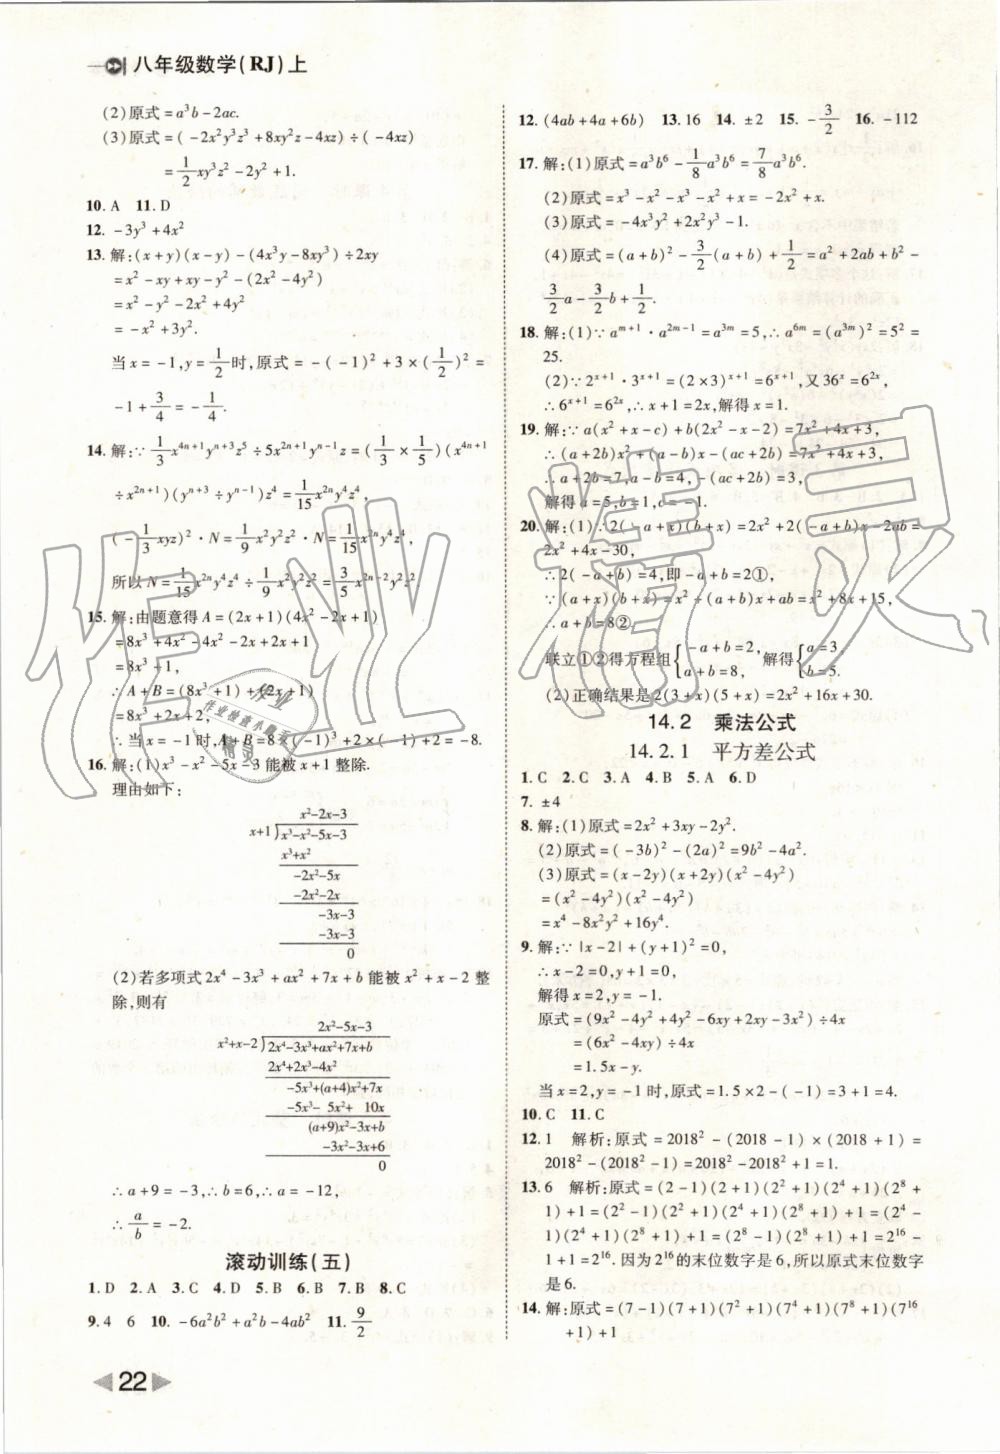 八年级数学(RJ)上
(2)原式=a³b-2ac.
(3)原式=(-2x²y³z³+8xy²z-4xz)÷(-4xz)
=1/2xy³z²-2y²+1.
10. A 11. D
12. -3y³+4x²
13. 解:(x+y)(x-y)-(4x³y-8xy³)÷2xy
=x²-xy+xy-y²-(2x²-4y²)
=x²-y²-2x²+4y²
=-x²+3y².
当x=-1,y=1/2时,原式=-(-1)²+3×(1/2)²=
-1+3/4=-1/4.
14. 解:∵1/3x⁴ⁿ⁺¹yⁿ⁺³z⁵÷5x²ⁿ⁺¹yⁿ⁻¹z=(1/3×1/5)(x⁴ⁿ⁺¹
÷x²ⁿ⁺¹)(yⁿ⁺³÷yⁿ⁻¹)z⁴=1/15x²ⁿy⁴z⁴,
(-1/3xyz)²·N=1/9x²y²z²·N=1/15x²ⁿy⁴z⁴,
所以N=1/15x²ⁿy⁴z⁴÷1/9x²y²z²=3/5x²ⁿ⁻²y²z²
15. 解:由题意得A=(2x+1)(4x²-2x+1)
=8x³+4x²-4x²-2x+2x+1
=8x³+1,
∴A+B=(8x³+1)+(2x+1)
=8x³+2x+2,
∴当x=-1时,A+B=8×(-1)³+2×(-1)+2=-8.
16. 解:(1)x³-x²-5x-3能被x+1整除.
理由如下:
x²-2x-3
x+1)x³-x²-5x-3
x³+x²
-2x²-5x
-2x²-2x
-3x-3
-3x-3
0
(2)若多项式2x⁴-3x³+ax²+7x+b能被x²+x-2整
除,则有
2x²-5x-3
x²+x-2)2x⁴-3x³+ax²+7x+b
2x⁴+2x³-4x²
-5x³+(a+4)x²+7x
-5x³- 5x²+ 10x
(a+9)x²-3x+b
-3x²-3x+6
0
∴a+9=-3,∴b=6,∴a=-12,
∴a/b=-2.
滚动训练(五)
1. D 2. A 3. C 4. C 5. B 6. B 7. B 8. C
9. 4 6 10. -6a²b²+a²b-4ab² 11. 9/2
12. (4ab+4a+6b) 13. 16 14. ±2 15. -3/2 16. -112
17. 解:(1)原式=a³b⁶-1/8a³b⁶=7/8a³b⁶.
(2)原式=x³-x²-x³-x²+x=-2x²+x.
(3)原式=-4x³y²+2x²y³-1.
(4)原式=(a+b)²-3/2(a+b)+1/2=a²+2ab+b²-
3/2a-3/2b+1/2.
18. 解:(1)∵aᵐ⁺¹·a²ᵐ⁻¹=a³ᵐ=5,∴a⁶ᵐ=(a³ᵐ)²=5²=
25.
(2)∵2ˣ⁺¹·3ˣ⁺¹=(2×3)ˣ⁺¹=6ˣ⁺¹,又36ˣ=6²ˣ,
∴6ˣ⁺¹=6²ˣ,∴x+1=2x,解得x=1.
19. 解:∵a(x²+x-c)+b(2x²-x-2)=7x²+4x+3,
∴(a+2b)x²+(a-b)x-(ac+2b)=7x²+4x+3,
∴a+2b=7,a-b=4,-(ac+2b)=3,
解得a=5,b=1,c=-1.
20. 解:(1)∵2(-a+x)(b+x)=2x²+2(-a+b)x-2ab=
2x²+4x-30,
∴2(-a+b)=4,即-a+b=2①,
∵(a+x)(b+x)=x²+(a+b)x+ab=x²+8x+15,
∴a+b=8②.
联立①②得方程组{-a+b=2, a+b=8, 解得{a=3, b=5.
(2)正确结果是2(3+x)(5+x)=2x²+16x+30.
14.2 乘法公式
14.2.1 平方差公式
1. C 2. C 3. A 4. B 5. A 6. D
7. ±4
8. 解:(1)原式=2x²+3xy-2y².
(2)原式=(-3b)²-(2a)²=9b²-4a².
(3)原式=(x-2y)(x+2y)(x²-4y²)
=(x²-4y²)(x²-4y²)
=x⁴-8x²y²+16y⁴.
9. 解:∵|x-2|+(y+1)²=0,
∴x-2=0,y+1=0,
解得x=2,y=-1.
原式=(9x²-4y²+4y²-6xy+2xy-3x²)÷4x
=(6x²-4xy)÷4x
=1.5x-y.
当x=2,y=-1时,原式=1.5×2-(-1)=3+1=4.
10. C 11. C
12. 1 解析:原式=2018²-(2018-1)×(2018+1)=
2018²-(2018²-1)=2018²-2018²+1=1.
13. 6 解析:原式=(2-1)(2+1)(2²+1)(2⁴+1)(2⁸+
1)+1=(2²-1)(2²+1)(2⁴+1)(2⁸+1)+1=(2⁴-
1)(2⁴+1)(2⁸+1)+1=(2⁸-1)(2⁸+1)+1=2¹⁶-
1+1=2¹⁶. 因为2¹⁶的末位数字是6,所以原式末位数字
是6.
14. 解:原式=(7-1)(7+1)(7²+1)(7⁴+1)(7⁸+1)(7¹⁶
+1)+1
22
作业精灵
作业
作业检查小帮手
精灵